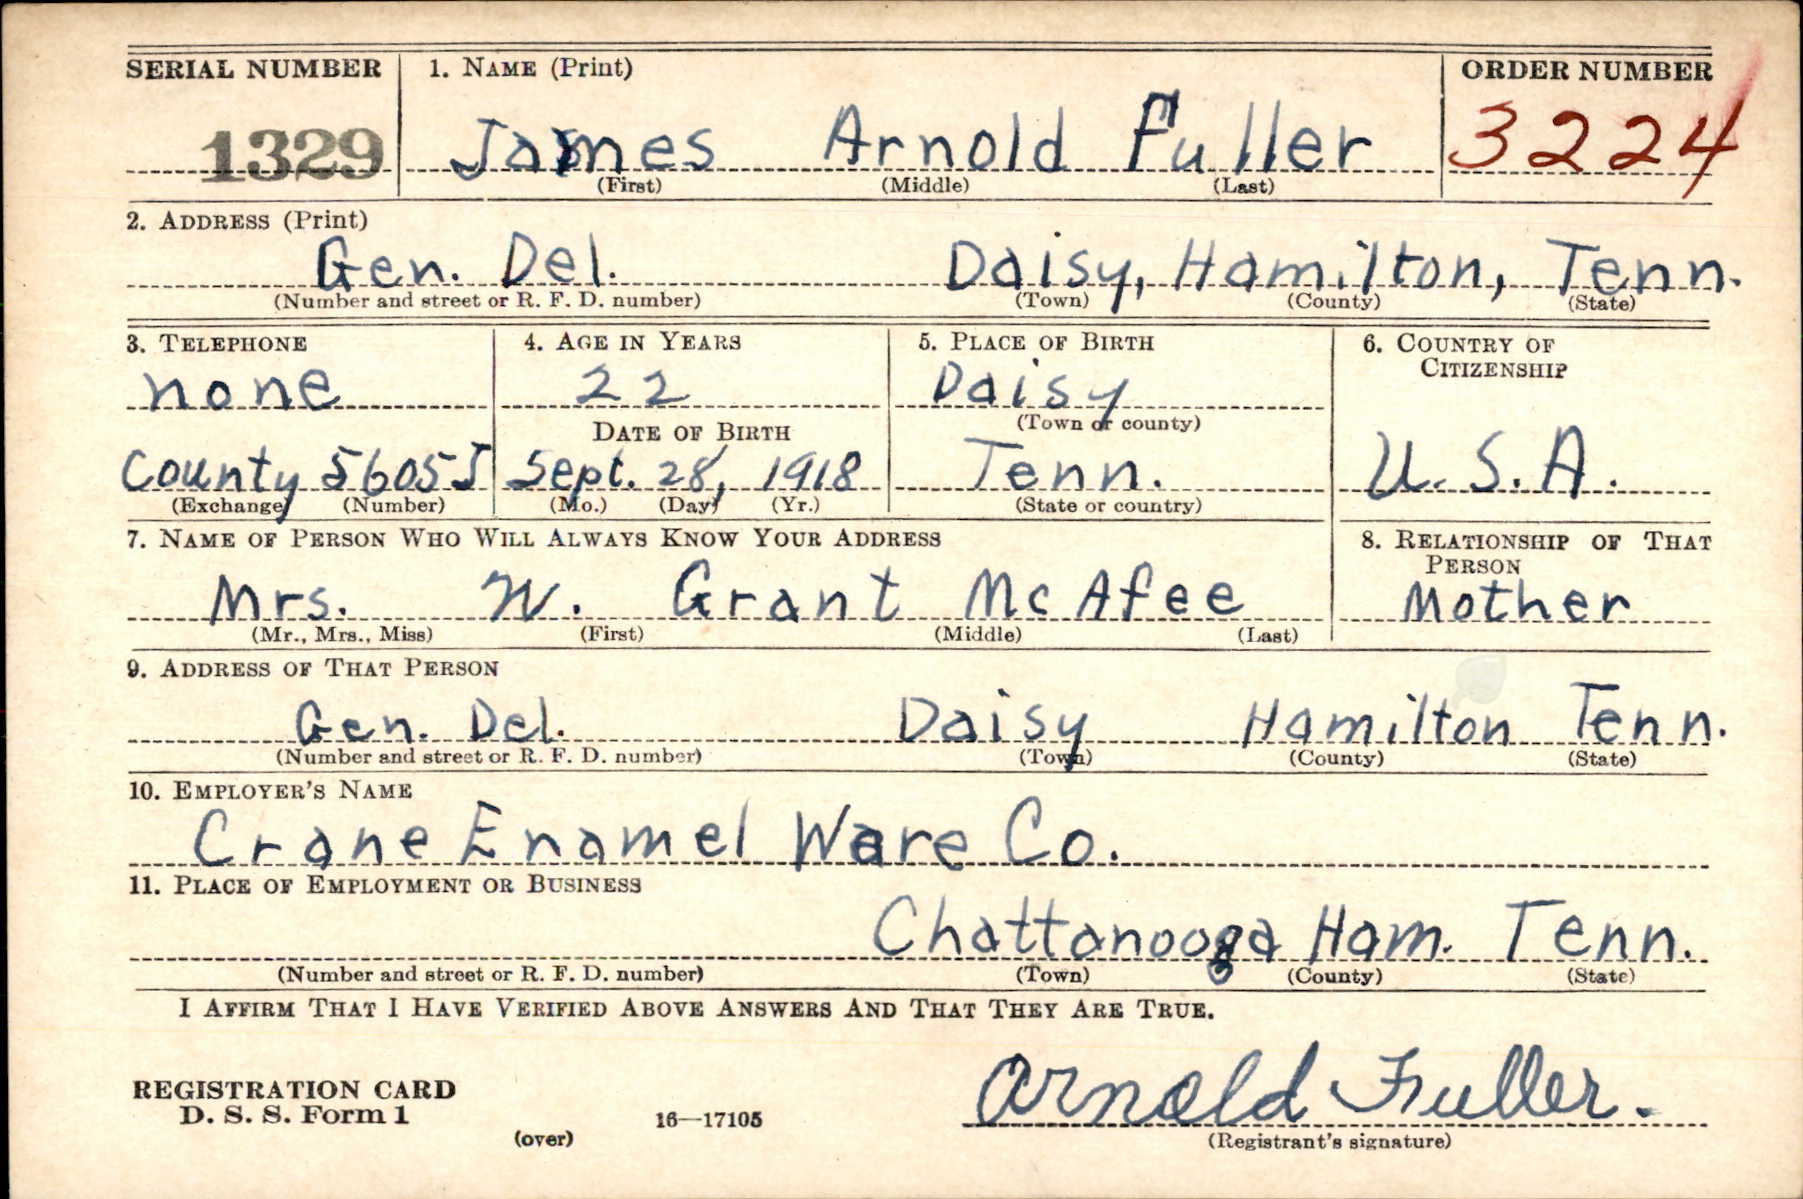 SERIAL NUMBER 1. NAME (Print) ORDER NUMBER
1329 James Arnold Fuller 3224
(First) (Middle) (Last)
2. ADDRESS (Print)
Gen. Del. Daisy, Hamilton, Tenn.
(Number and street or R. F. D. number) (Town) (County) (State)
3. TELEPHONE 4. AGE IN YEARS 5. PLACE OF BIRTH 6. COUNTRY OF CITIZENSHIP
none 22 Daisy
DATE OF BIRTH (Town or county)
County 5605J Sept. 28, 1918 Tenn. U. S. A.
(Exchange) (Number) (Mo.) (Day) (Yr.) (State or country)
7. NAME OF PERSON WHO WILL ALWAYS KNOW YOUR ADDRESS 8. RELATIONSHIP OF THAT PERSON
Mrs. W. Grant McAfee Mother
(Mr., Mrs., Miss) (First) (Middle) (Last)
9. ADDRESS OF THAT PERSON
Gen. Del. Daisy Hamilton Tenn.
(Number and street or R. F. D. number) (Town) (County) (State)
10. EMPLOYER'S NAME
Crane Enamel Ware Co.
11. PLACE OF EMPLOYMENT OR BUSINESS
Chattanooga Ham. Tenn.
(Number and street or R. F. D. number) (Town) (County) (State)
I AFFIRM THAT I HAVE VERIFIED ABOVE ANSWERS AND THAT THEY ARE TRUE.
REGISTRATION CARD
D. S. S. Form 1 16—17105 Arnold Fuller.
(over) (Registrant's signature)